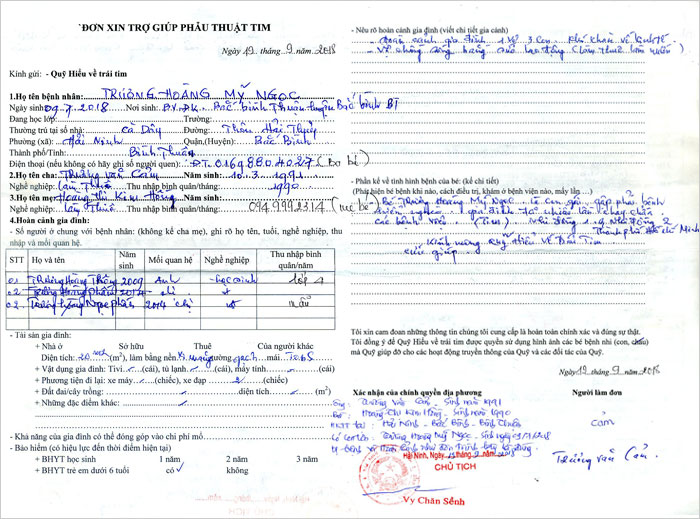 ĐƠN XIN TRỢ GIÚP PHẪU THUẬT TIM
Ngày 19 tháng 9 năm 2018
Kính gửi: - Quỹ Hiểu về trái tim
1.Họ tên bệnh nhân: TRƯƠNG HOÀNG MỸ NGỌC
Ngày sinh: 09.7.2018 Nơi sinh: BV.ĐK. Bắc bình Thuận huyện Bắc bình BT
Đang học lớp: Trường:
Thường trú tại số nhà: Cà Dây Đường: Thôn Hải Thuỷ
Phường (xã): Hải Ninh Quận,(Huyện): Bắc Bình
Thành phố/Tỉnh: Bình Thuận
Điện thoại (nếu không có hãy ghi số người quen): ĐT. (Ba bé)
2.Họ tên cha: Trương Văn Cảm Năm sinh: 10.3.1991
Nghề nghiệp: làm Thuê Thu nhập bình quân/tháng:
3.Họ tên mẹ: Hoàng Thị Kim Hồng Năm sinh: 1990
Nghề nghiệp: làm Thuê Thu nhập bình quân/tháng: (mẹ bé)
4.Hoàn cảnh gia đình:
- Số người ở chung với bệnh nhân: (không kể cha mẹ), ghi rõ họ tên, tuổi, nghề nghiệp, thu
nhập và mối quan hệ.
STT Họ và tên Năm sinh Mối quan hệ Nghề nghiệp Thu nhập bình quân/năm
01 Trương Hoàng 2009 Anh Học sinh lớp 4
02 Trương Hoàng 2014 chị
02 Trương Hoàng Ngọc 2014 chị mẫu
- Tài sản gia đình:
+ Nhà ở Sở hữu Thuê Của người khác
Diện tích: 20 (m2), làm bằng nền tường gạch mái
+ Vật dụng gia đình: Tivi (cái), tủ lạnh (cái), máy tính (cái)
+ Phương tiện đi lại: xe máy (chiếc), xe đạp (chiếc)
+ Đất đai/cây trồng: diện tích (m2)
+ Những đặc điểm khác:
- Khả năng của gia đình có thể đóng góp vào chi phí mổ
- Bảo hiểm (có hiệu lực đến thời điểm hiện tại)
+ BHYT học sinh 1 năm 2 năm 3 năm
+ BHYT trẻ em dưới 6 tuổi có √ không
- Nêu rõ hoàn cảnh gia đình (viết chi tiết gia cảnh)
Hoàn cảnh gia đình 1 vợ 3 con. khó khăn về kinh tế
Vợ chồng sống bằng sức lao động (làm thuê làm mướn)
- Phần kể về tình hình bệnh của bé: (kể chi tiết)
(Phát hiện bé bệnh khi nào, cách điều trị, khám ở bệnh viện nào, mấy lần…)
Bé Trương Hoàng Mỹ Ngọc là con gái gặp phải bệnh
hiểm nghèo. gia đình
các bệnh viện (Tim) Nhi đồng 1. Nhi đồng 2
Thành phố Hồ chí Minh
Kính mong quỹ Hiểu Về trái Tim
cứu giúp.
Tôi xin cam đoan những thông tin chúng tôi cung cấp là hoàn toàn chính xác và đúng sự thật.
Tôi đồng ý để Quỹ Hiểu về trái tim được quyền sử dụng hình ảnh các bé bệnh nhi (con, cháu)
mà Quỹ giúp đỡ cho các hoạt động truyền thông của Quỹ và các đối tác của Quỹ.
Ngày 19 tháng 9 năm 2018
Xác nhận của chính quyền địa phương Người làm đơn
Ông: Trương Văn Cảm - Sinh năm 1991
Bà: Hoàng Thị Kim Hồng - Sinh năm 1990
HKTT tại: Hải Ninh - Bắc Bình - Bình Thuận
Có con tên: Trương Hoàng Mỹ Ngọc - Sinh ngày 09/7/2018
Cảm
Hải Ninh, Ngày tháng 9 năm 2018
CHỦ TỊCH
Vy Chăn Sềnh
Trương Văn Cảm.